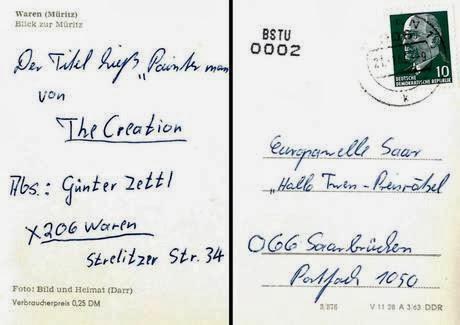 Waren (Müritz)
Blick zur Müritz
Der Titel hieß „Painter man
von
The Creation
Abs.: Günter Zettl
X206 Waren
Strelitzer Str. 34
Foto: Bild und Heimat (Darr)
Verbraucherpreis 0,25 DM
BSTU
0002
10
DEUTSCHE
DEMOKRATISCHE REPUBLIK
Europawelle Saar
„Hallo Twen-Preisrätsel
066 Saarbrücken
Postfach 1050
V 11 28 A 3/63 DDR